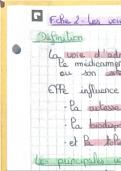 Fiche 2 - Les voi
Définition
La voie d'ad
Le médicamen
ou son
Elle influence
- La
- La biodisp
- et la tolé
Les principales v